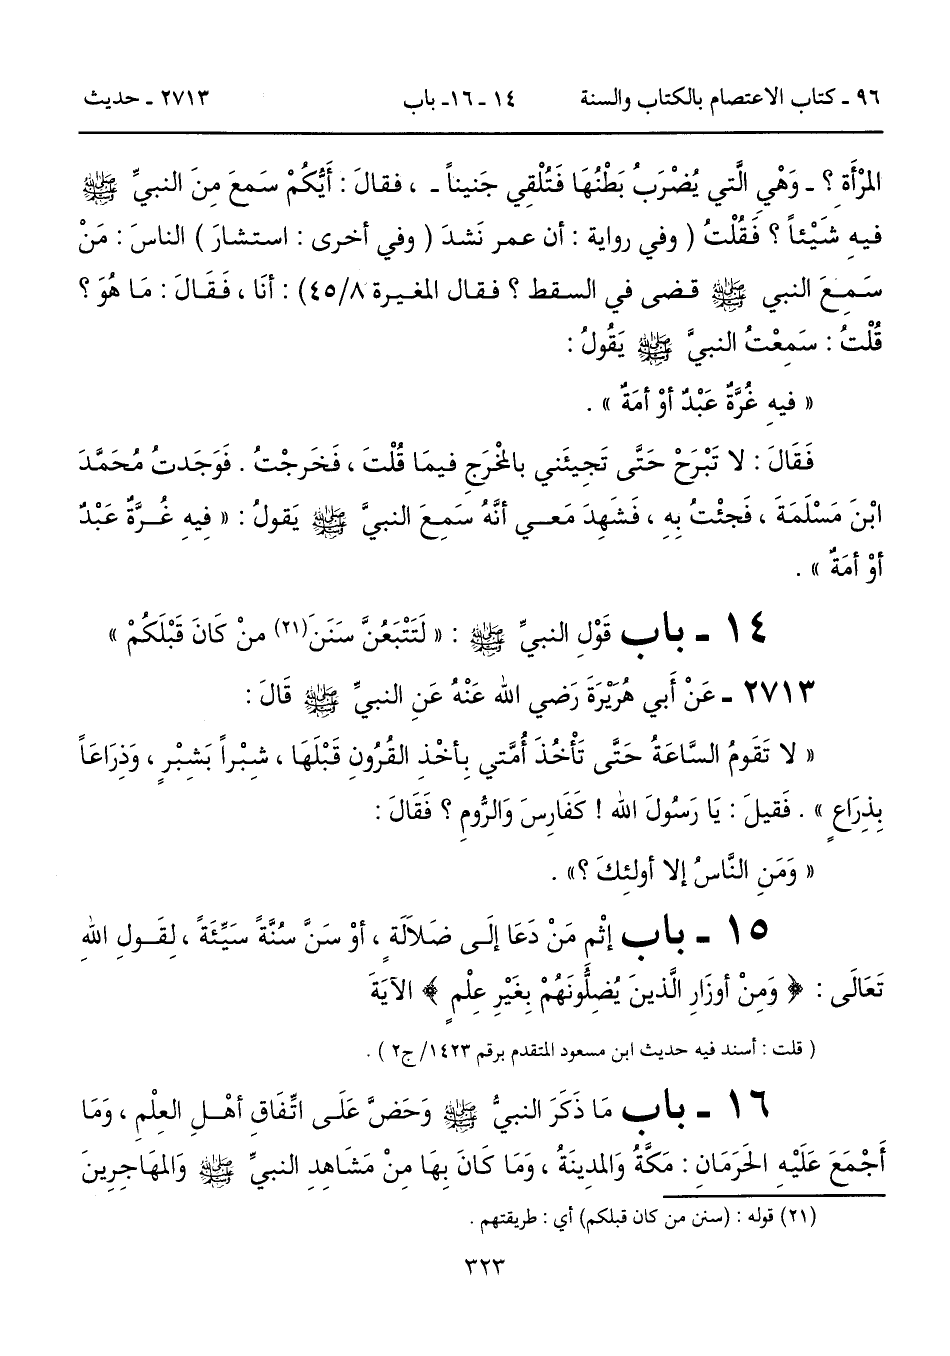 ٩٦ ـ كتاب الاعتصام بالكتاب والسنة ١٤ ـ ١٦ـ باب ٢٧١٣ ـ حديث
المرْأَةِ ؟ ـ وَهْيِ الَّتي يُضْرَبُ بَطْنُهَا فَتُلْقِي جَنيناً ـ ، فقالَ : أَيُّكُمْ سَمعَ مِنَ النبيِّ ﷺ
فيهِ شَيْئاً ؟ فَقُلْتُ ( وفي رواية : أن عمر نَشدَ ( وفي أخرى : استشارَ ) الناسَ : مَنْ
سَمِعَ النبي ﷺ قضى في السقط ؟ فقال المغيرة ٤٥/٨) : أنَا ، فَقَالَ : مَا هُوَ ؟
قُلْتُ : سَمِعْتُ النبيَّ ﷺ يَقُولُ :
« فيهِ غُرَّةٌ عَبْدٌ أوْ أمَةٌ » .
فَقَالَ : لا تَبْرَحْ حَتَّى تَجيئَني بالمخْرَجِ فيمَا قُلْتَ ، فَخَرجْتُ . فَوَجَدتُ مُحَمَّدَ
ابْنَ مَسْلَمَةَ ، فَجئْتُ بِهِ ، فَشَهِدَ مَعـي أنَّهُ سَمِعَ النبيَّ ﷺ يَقولُ : « فِيهِ غُـرَّةٌ عَبْدٌ
أوْ أمَةٌ » .
١٤ ـ باب قَوْلِ النبيِّ ﷺ : « لَتَتْبَعُنَّ سَنَنَ(٢١) منْ كَانَ قَبْلَكُمْ »
٢٧١٣ ـ عَنْ أَبي هُرَيْرَةَ رَضي الله عَنْهُ عَنِ النبيِّ ﷺ قَالَ :
« لا تَقَومُ السَّاعَةُ حَتَّى تَأْخُذَ أُمَّتي بِأخْذِ القُرُونِ قَبْلَهَا ، شبْراً بَشبْرٍ ، وَذِرَاعَاً
بِذِرَاعٍ » . فَقيلَ : يَا رَسُولَ الله ! كَفَارِسَ وَالرُّومِ ؟ فَقَالَ :
« وَمَنِ النَّاسُ إلا أولئِكَ ؟» .
١٥ ـ باب إثْمِ مَنْ دَعَا إلَـى ضَلالَةٍ ، أوْ سَنَّ سُنَّةً سَيِّئَةً ، لِقَـولِ اللهِ
تَعَالَى : ﴿ وَمِنْ أوزَارِ الَّذينَ يُضلُّونَهُمْ بِغَيْرِ عِلْمٍ ﴾ الآيَةَ
( قلت : أسند فيه حديث ابن مسعود المتقدم برقم ١٤٢٣/ ج٢ ) .
١٦ ـ باب مَا ذَكَرَ النبيُّ ﷺ وَحَضَّ عَلَـى اتِّفَاقِ أهْـلِ العِلْمِ ، وَمَا
أَجْمَعَ عَلَيْهِ الحَرَمَانِ : مَكَّةُ وَالمدِينَةُ ، وَمَا كَانَ بِهَا مِنْ مَشَاهِدِ النبيِّ ﷺ وَالمهَاجِرِينَ
(٢١) قوله : (سنن من كان قبلكم) أي : طريقتهم .
٣٢٣